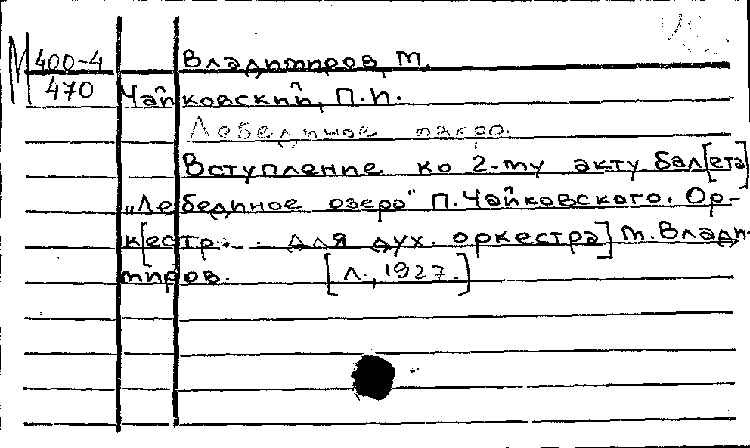 М 400-4 Владимиров, М.
470 Чайковский, П.И.
Лебединое озеро.
Вступление ко 2-му акту бал[ета]
„Лебединое озеро" П. Чайковского. Ор-
к[естр. для дух. оркестра] М. Влади-
миров. [Л., 1927.]